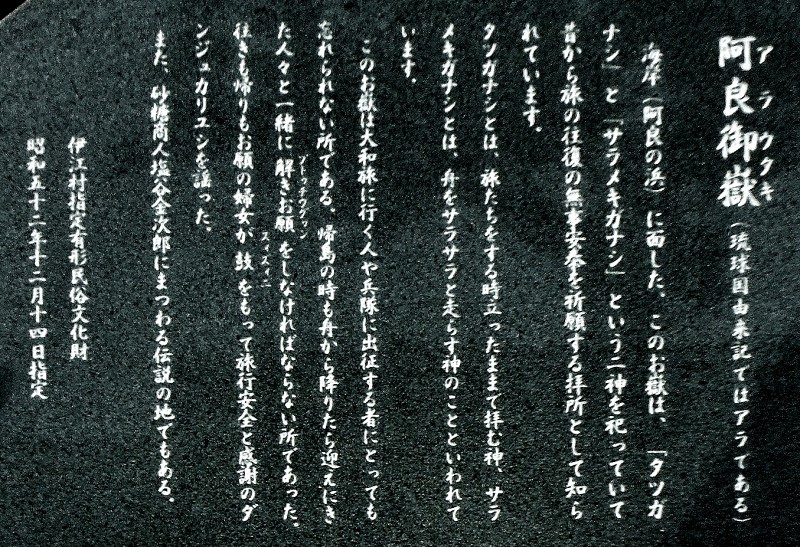 阿良御嶽（琉球国由来記ではアラである）
アラウタキ
海岸（阿良の浜）に面した、このお嶽は、「タツガ
ナシ」と「サラメキガナシ」という二神を祀っていて
昔から旅の往復の無事安泰を祈願する拝所として知ら
れています。
タツガナシとは、旅たちをする時立ったままで拝む神、サラ
メキガナシとは、舟をサラサラと走らす神のことといわれて
います。
このお嶽は大和旅に行く人や兵隊に出征する者にとっても
忘れられない所である。帰島の時も舟から降りたら迎えにき
た人々と一緒に解きお願をしなければならない所であった。
プトゥチウグヮン
往きも帰りもお願の婦女が鼓をもって旅行安全と感謝のダ
ンジュカリユシを謡った。
また、砂糖商人塩谷金次郎にまつわる伝説の地でもある。
伊江村指定有形民俗文化財
昭和五十二年十二月十四日指定